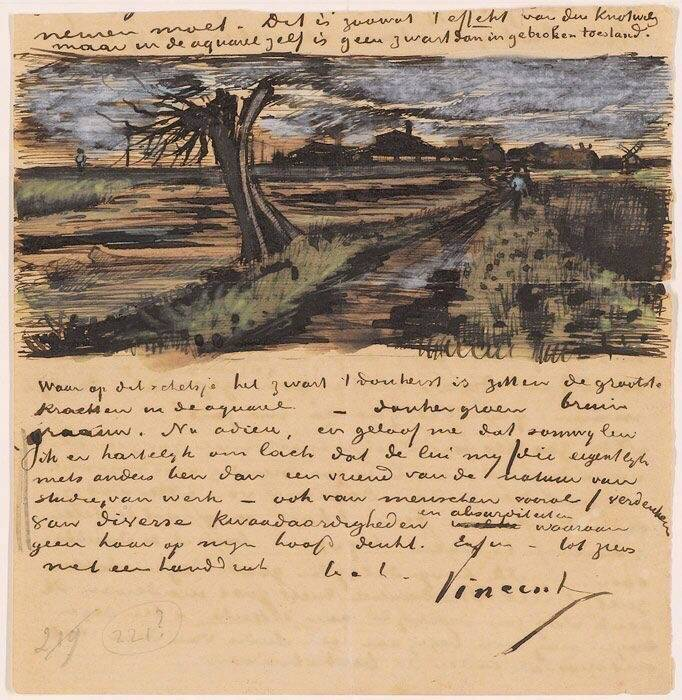 nemen moet. Dit is zoowat 't effekt van den Knotwilg
maar in de aquarel zelf is geen zwart dan in gebroken toestand.
Waar op dit schetsje het zwart 't donkerst is zitten de grootste
krachten in de aquarel – donkergroen bruin
graauw. Nu adieu, en geloof me dat somwylen
ik er hartelyk om lach dat de lui my /die eigentlyk
niets anders ben dan een vriend van de natuur van
studie, van werk – ook van menschen vooral / verdenken
van diverse kwaadaardigheden en absurditeiten waaraan
geen haar op myn hoofd denkt. Enfin – tot ziens
met een handdruk t. à t. Vincent
219 221?